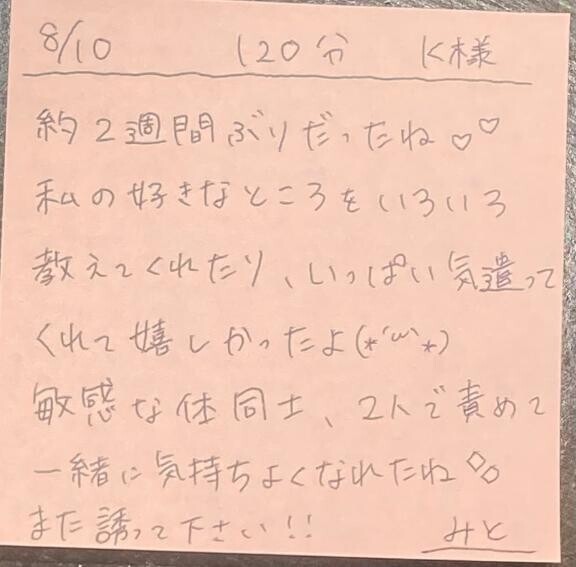 8/10 120分 K様
約2週間ぶりだったね♡♡
私の好きなところをいろいろ
教えてくれたり、いっぱい気遣って
くれて嬉しかったよ(*´ω`*)
敏感な体同士、2人で責めて
一緒に気持ちよくなれたね◇◇
また誘って下さい!!
みと